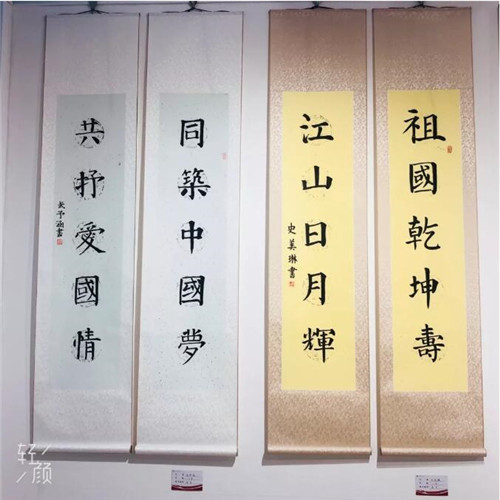 祖國乾坤壽
江山日月輝
史美琳書
同築中國夢
共抒愛國情
輕顏